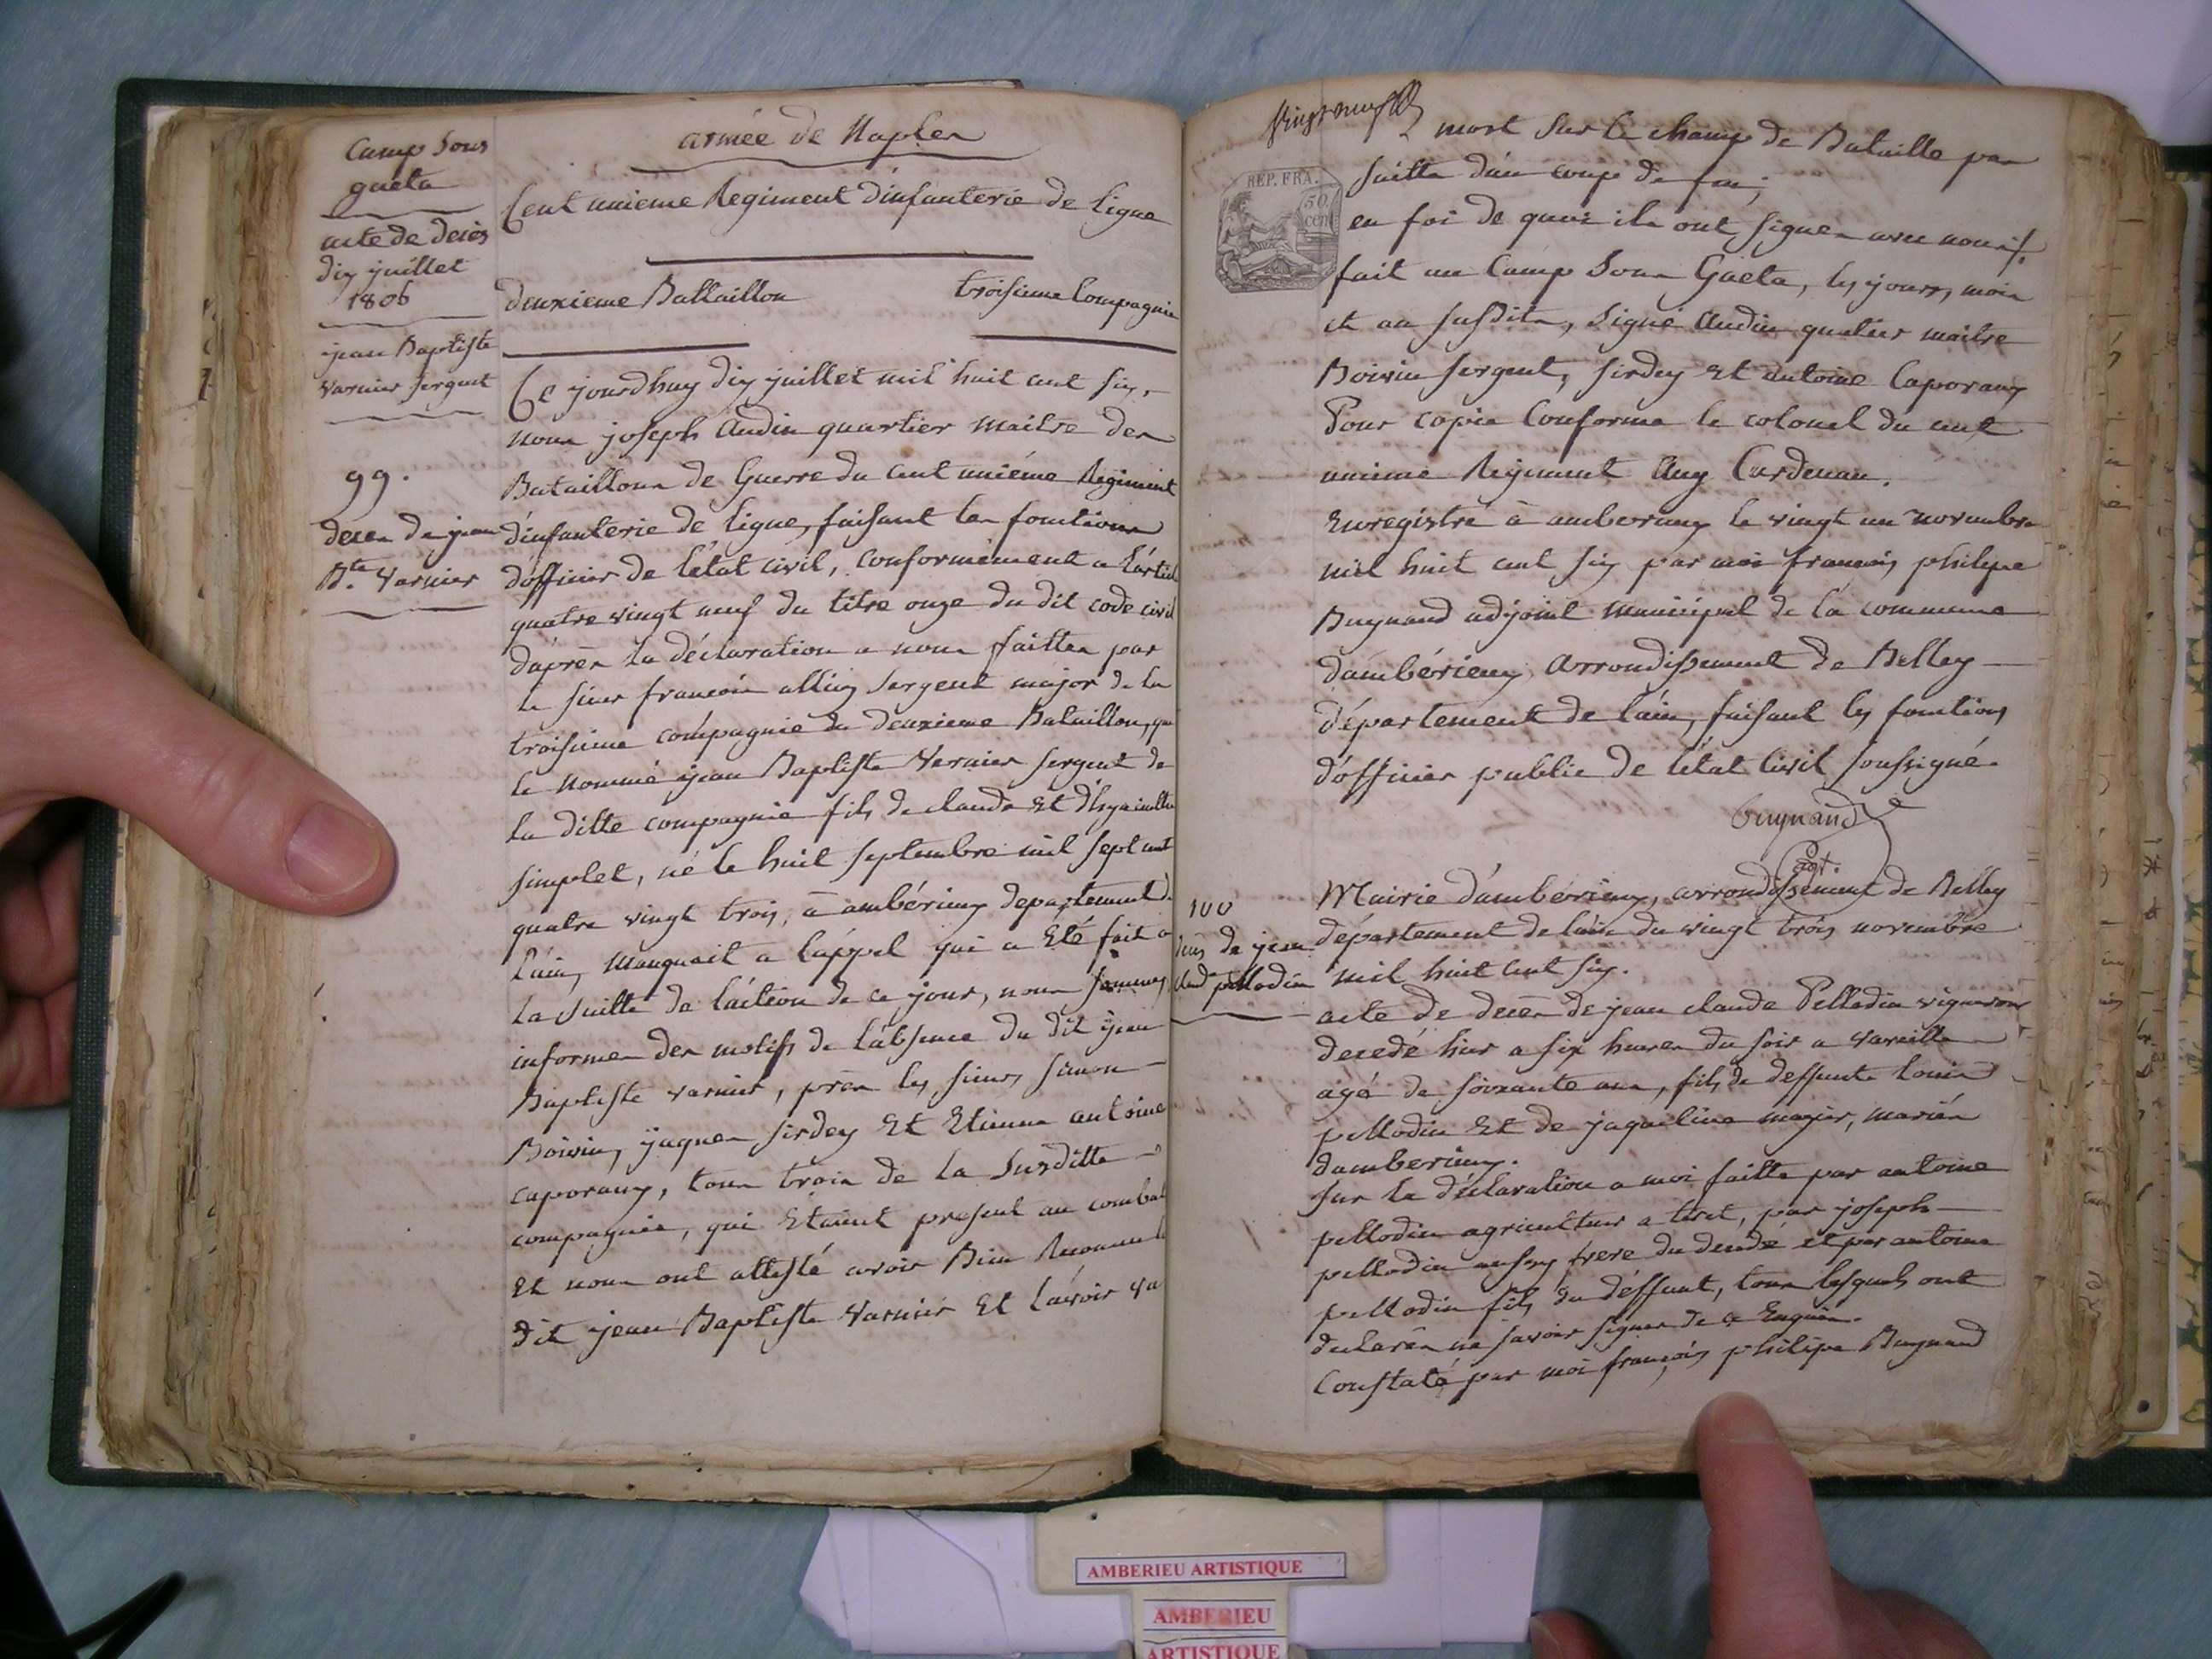 Camp Sous
gaeta
acte de decès
dix juillet
1806
jean Baptiste
Varnier sergent
99.
deces de jean
Bte. Varnier
armée de Naples
Cent unieme Regiment d'infanterie de Ligne
deuxieme Battaillon troisieme Compagnie
Ce jourdhuy dix juillet mil huit cent six,
nous joseph Audin quartier maitre des
Bataillons de Guerre du cent unième Regiment
d'infanterie de ligne, faisant les fonctions
d'officier de l'état civil, conformément a l'article
quatre vingt neuf du titre onze du dit code civil
d'après la déclaration a nous faittes par
le sieur francois alliey sergent major de la
troisieme compagnie du deuxieme Bataillon, que
le nommé jean Baptiste Vernier sergent de
la ditte compagnie fils de claude et
simplet, né le huit septembre mil sept cent
quatre vingt trois, à ambérieux departement de
l'ain, manquait a l'appel qui a Eté fait a
la suitte de l'action de ce jour, nous sommes
informes des motifs de l'absence du dit jean
Baptiste varnier, près les sieurs simon
Boivin, jaques sirdey Et Etienne antoine
caporaux, tous trois de la Susditte
compagnie, qui Etaient present au combat
Et nous ont attesté avoir Bien Reconnu le
dit jean Baptiste Varnier Et L'avoir vu
mort sur le champ de Bataille par
suitte d'un coup de feu;
en foi de quoi ils ont signés avec nous
fait au Camp Sous Gaeta, les jours, mois
et an susdits, signé Audin quatier maitre
Boivin sergent, sirdey Et antoine Caporaux
Pour copie Conforme le colonel du cent
unieme Regiment Aug Cardenau.
REP. FRA.
50
cent
Enregistré à amberieux le vingt un novembre
mil huit cent six par moi francois philipe
Buynand adjoint municipal de la commune
d'ambérieux, arrondissement de Belley
département de l'ain, faisant les fonctions
d'officier public de l'état Civil soussigné.
buynand
adjt.
100
deces de jean
claude pellodin
Mairie d'ambérieux, arrondissement de Belley
département de l'ain du vingt trois novembre
mil huit cent six.
acte de deces de jean claude Pellodin vigneron
decedé hier a six heures du soir a Vareilles
agé de soixante ans, fils de deffunts Louis
pellodin Et de jaqueline mayer, mariés
d'amberieux.
sur la déclaration a moi faitte par antoine
pellodin agriculteur a tiret, par joseph
pellodin aussy frere du decedé et par antoine
pellodin fils du déffunt, tous lesquels ont
declarés ne savoir signer de ce Enquis.
Constaté par moi françois philipe Buynand
AMBERIEU ARTISTIQUE
AMBERIEU
ARTISTIQUE